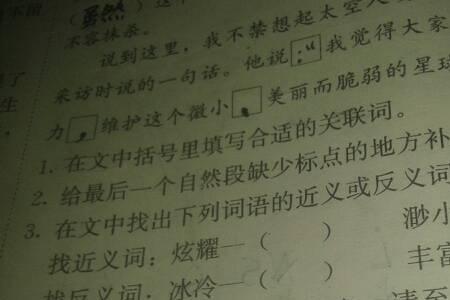 （虽然）这
不容抹杀。
说到这里，我不禁想起太空人
采访时说的一句话。他说：“我觉得大家
力，维护这个微小、美丽而脆弱的星球
1. 在文中括号里填写合适的关联词。
2. 给最后一个自然段缺少标点的地方补
3. 在文中找出下列词语的近义或反义词
找近义词：炫耀—（ ） 渺小
找反义词：冰冷—（ ） 丰富